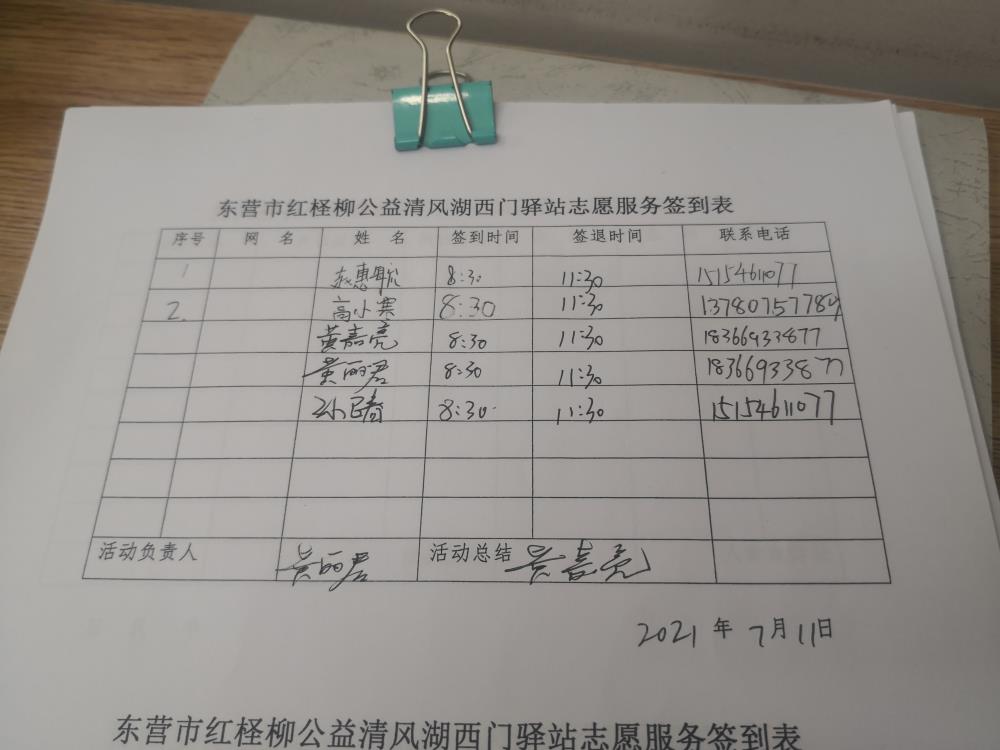 东营市红柽柳公益清风湖西门驿站志愿服务签到表
序号 网 名 姓 名 签到时间 签退时间 联系电话
1 8:30 11:30 15154611077
2. 高小霖 8:30 11:30 13780757789
黄嘉亮 8:30 11:30 18366933877
黄丽君 8:30 11:30 18366933877
8:30 11:30 15154611077
活动负责人 黄丽君 活动总结 黄嘉亮
2021 年 7月11日
东营市红柽柳公益清风湖西门驿站志愿服务签到表